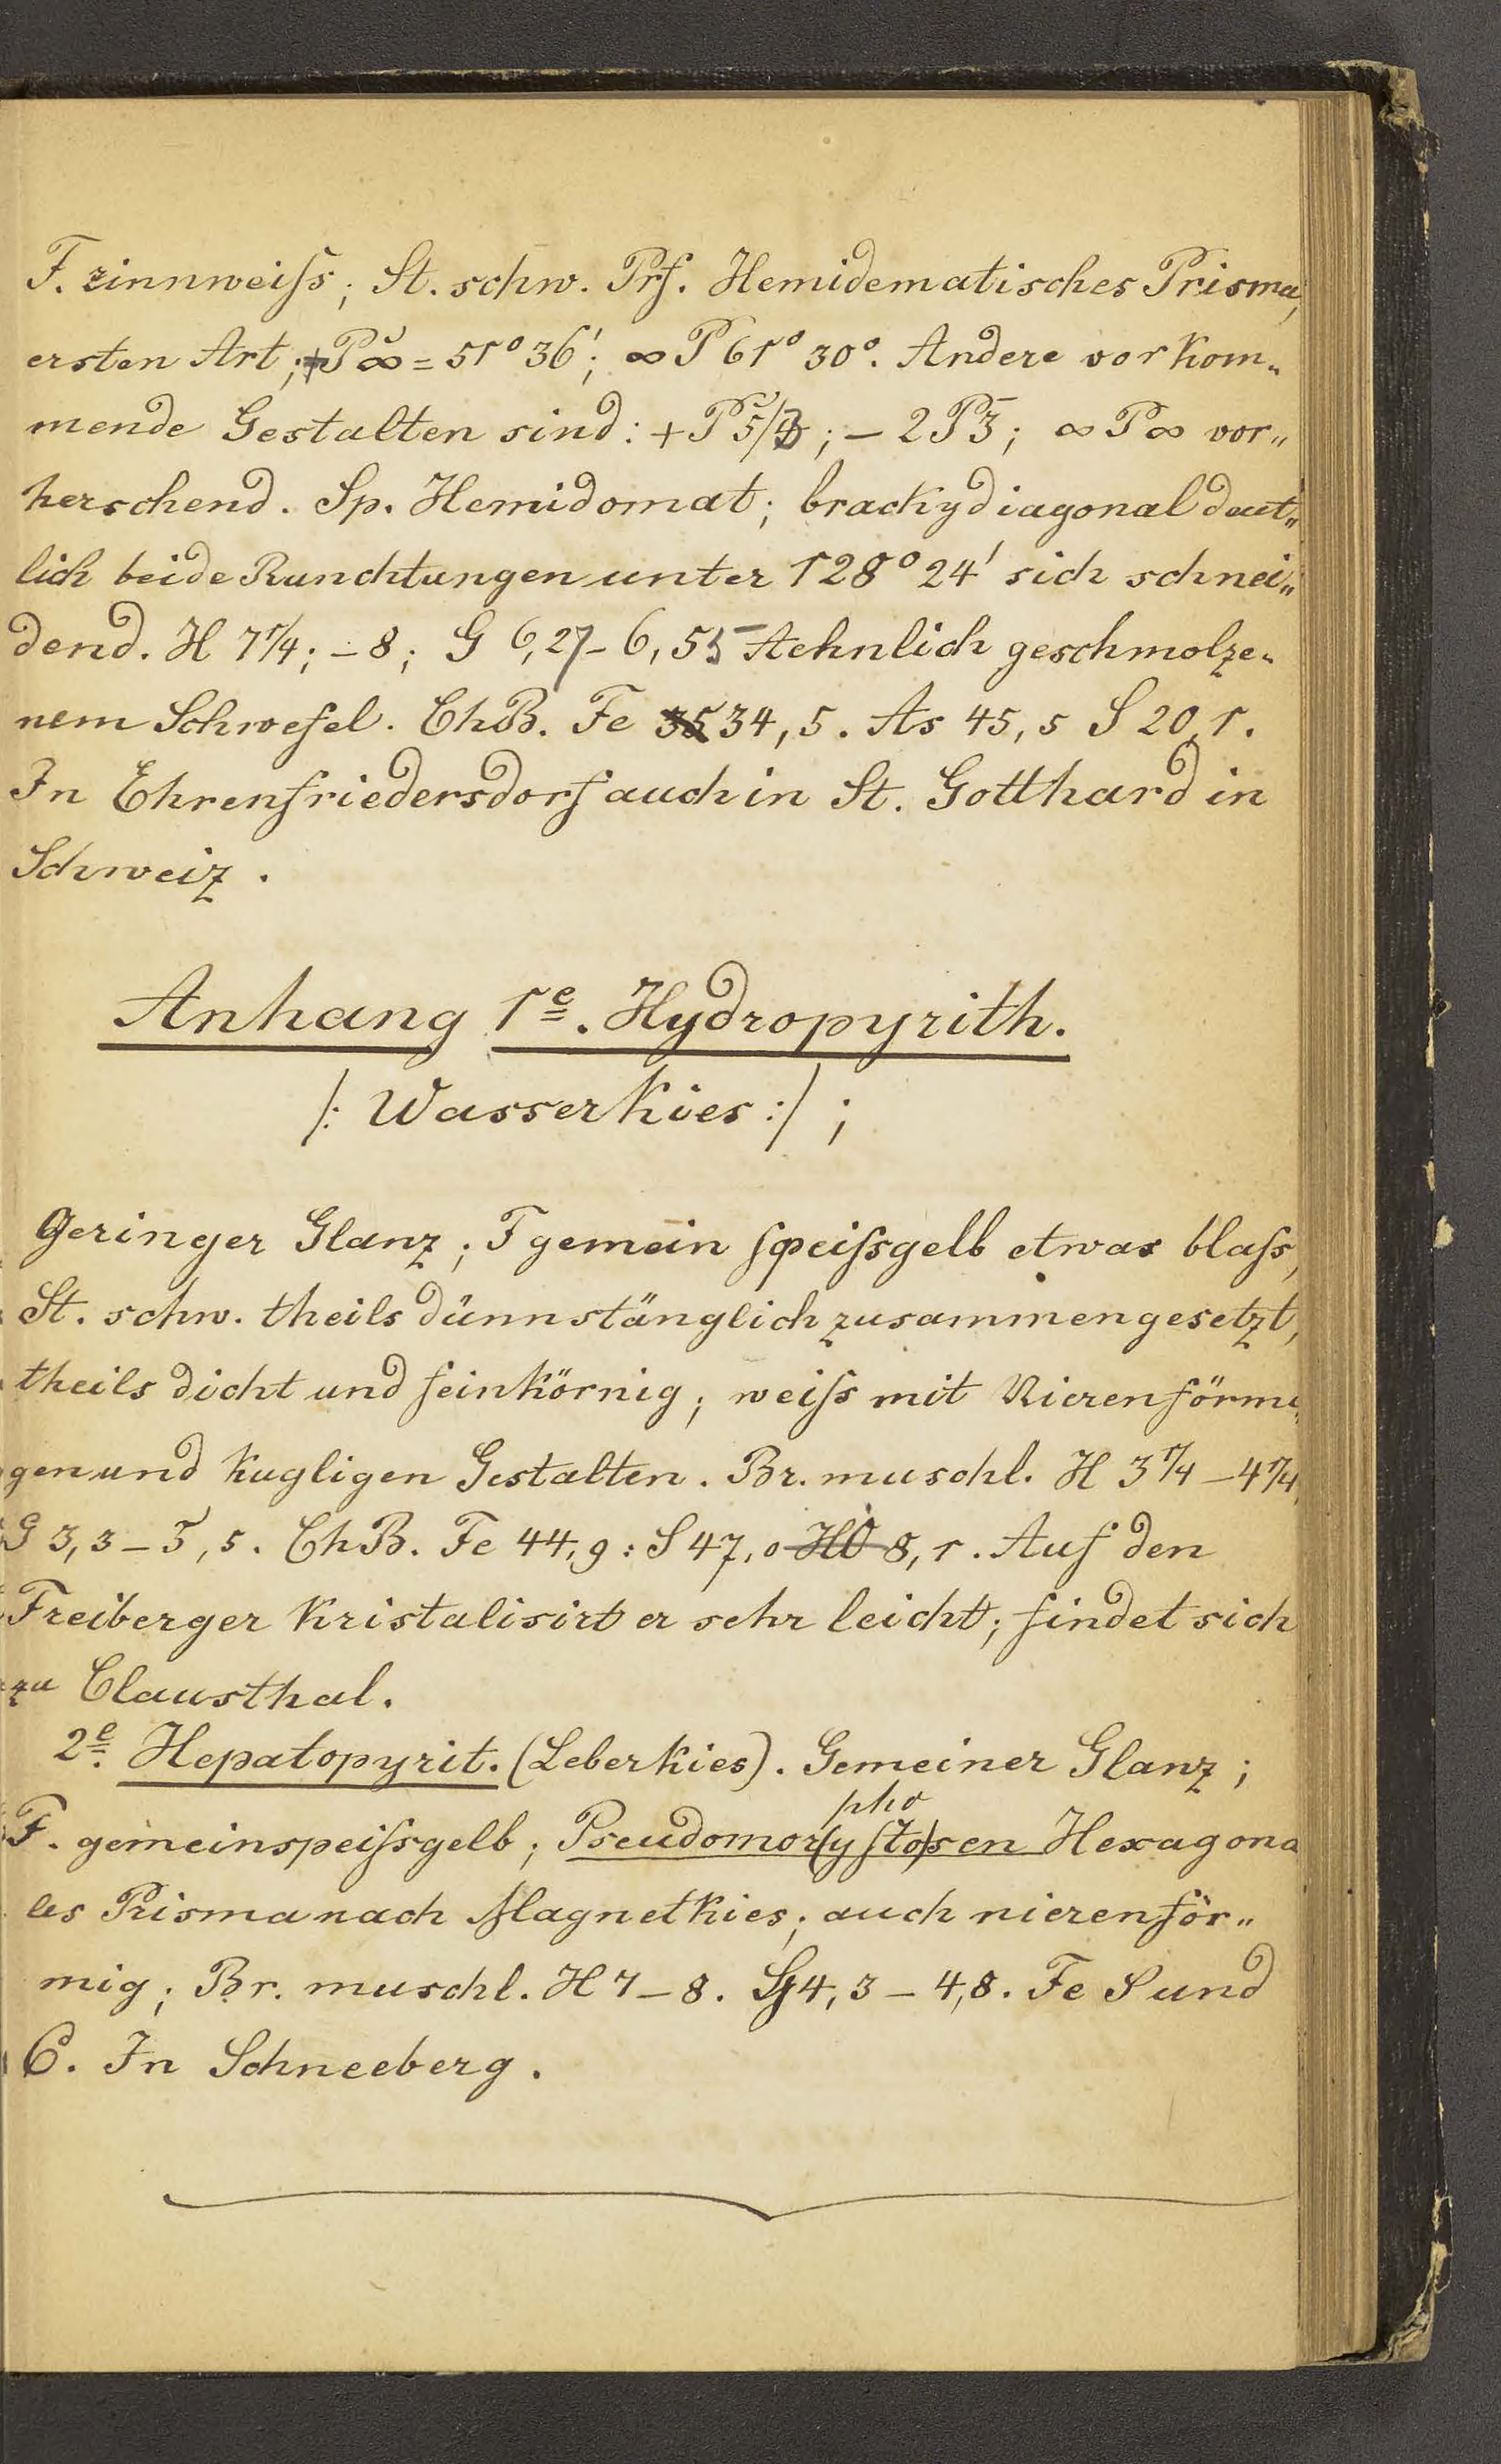 F. zinnweiſs; St. schw. Prf. Hemidematisches Prisma,
ersten Art; +P̆∞ = 51° 36'; ∞P 61° 30°. Andere vorkom„
mende Gestalten sind: + P̆5/4; – 2P̄3; ∞P∞ vor„
herschend. Sp. Hemidomat; brachydiagonal deut„
lich beide Runchtungen unter 128° 24' sich schnei„
dend. H 7 1/4; – 8; G 6,27 – 6,55 Aehnlich geschmolze„
nem Schwefel. ChB. Fe 34,5. As 45,5 S 20,1.
In Ehrenfriedersdorf auch in St. Gotthard in
Schweiz.
Anhang 1e. Hydropyrith.
/: Wasserkies :/ ;
Geringer Glanz; F gemein ſpeiſsgelb etwas blaſs,
St. schw. theils dünnstänglich zusammengesetzt,
theils dicht und feinkörnig; weiſs mit Nierenförmi
gen und kugligen Gestalten. Br. muschl. H 3 1/4 – 4 1/4,
G 3,3 – 3,5. ChB. Fe 44,9 : S 47,0 HO 8,1. Auf den
Freiberger kristalisirt er sehr leicht; findet sich
zu Clausthal.
2e. Hepatopyrit. (Leberkies). Gemeiner Glanz;
pho
F. gemeinspeiſsgelb; Pseudomor(yſto)sen Hexagona
les Prisma nach Magnetkies; auch nierenför„
mig; Br. muschl. H 7 – 8. G 4,3 – 4,8. Fe S und
C. In Schneeberg.